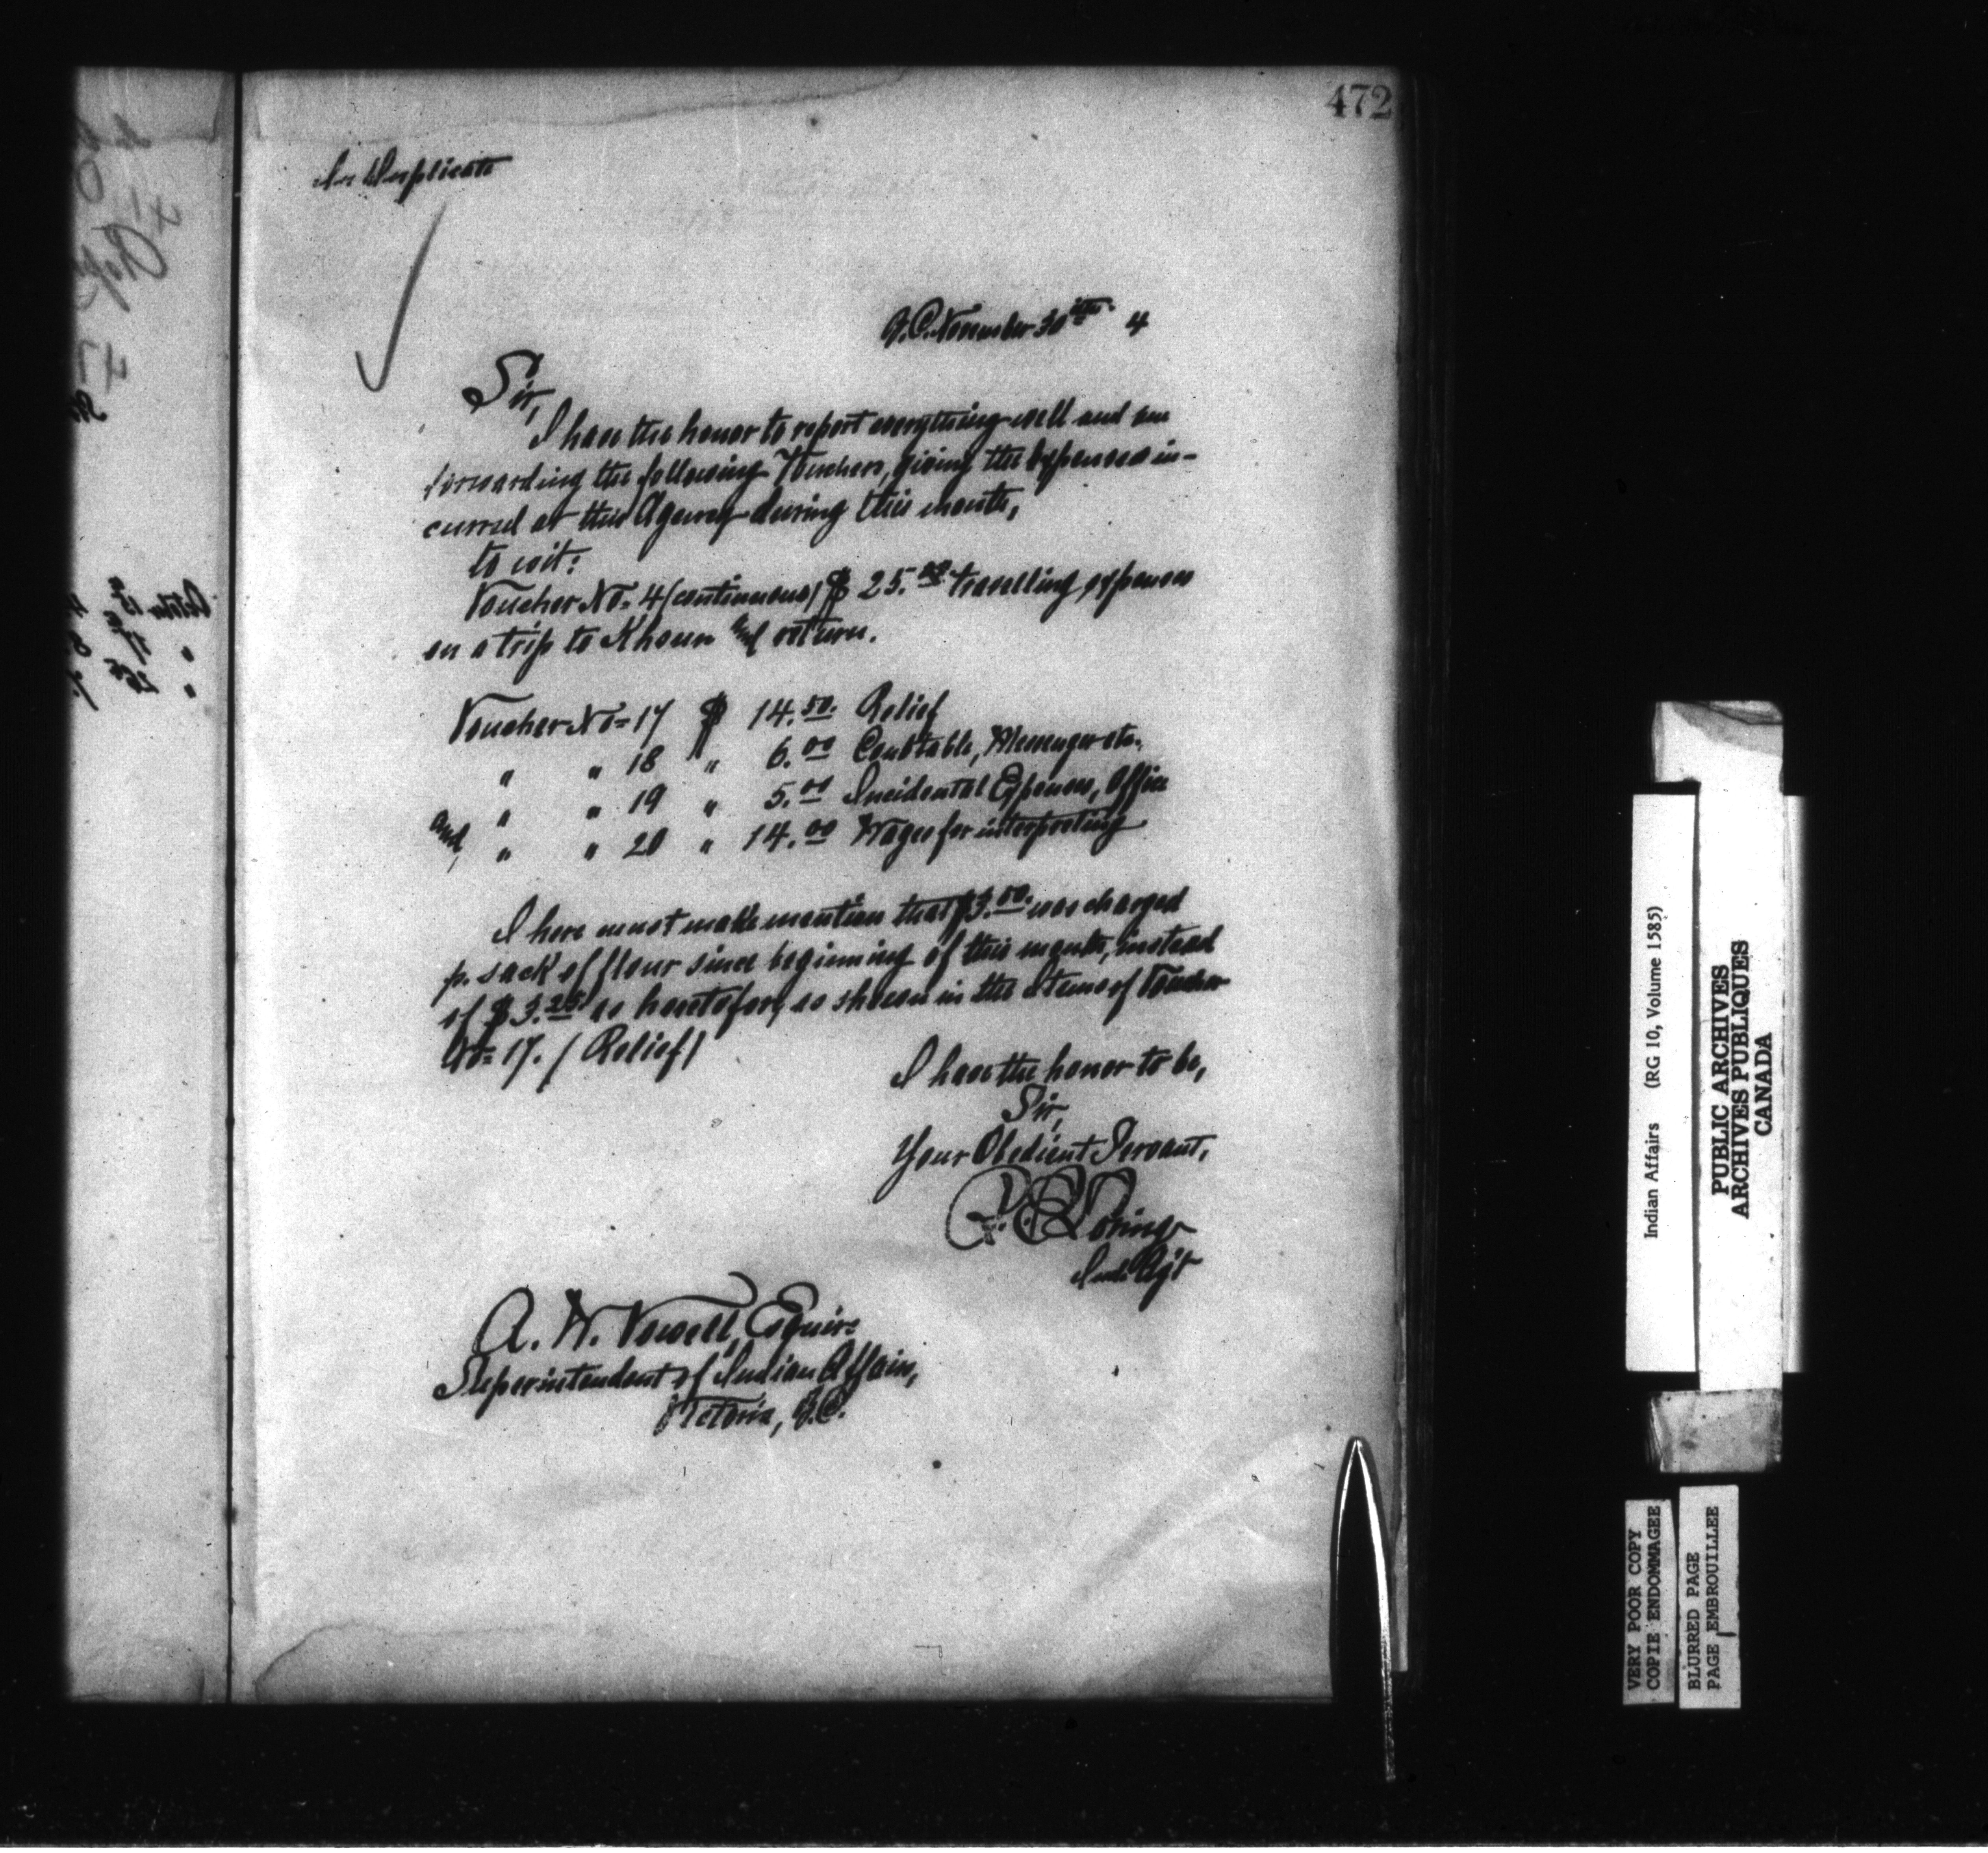 472
In Duplicate
B.C. November 30th 4
Sir,
I have the honor to report everything well and am
forwarding the following Vouchers, giving the Expenses in-
curred at this Agency during this month,
to wit:
Voucher No= 4 (continuous) $ 25.00 travelling expenses
on a trip to and return.
Voucher No= 17 $ 14.50. Relief
" " 18 " 6.00 Constable, Messenger etc.
" " 19 " 5.00 Incidental Expenses, Office
and, " " 20 " 14.00 Wages for interpreting
I here must make mention that $3.50. was charged
p. sack of flour since beginning of this month, instead
of $3.25 as heretofore, as shown in the items of Voucher
No= 17. (Relief)
I have the honor to be,
Sir,
Your Obedient Servant,
R. E. Loring
Ind. Ag't
A. W. Vowell, Esquire
Superintendent of Indian Affairs,
Victoria, B.C.
Indian Affairs (RG 10, Volume 1585)
PUBLIC ARCHIVES
ARCHIVES PUBLIQUES
CANADA
VERY POOR COPY
COPIE ENDOMMAGEE
BLURRED PAGE
PAGE EMBROUILLEE